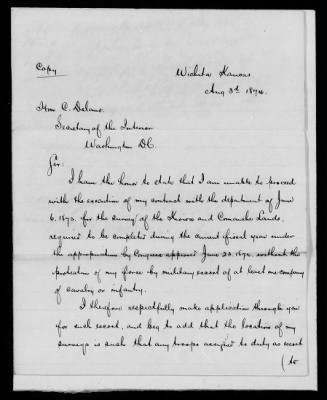 Copy
Wichita Kansas
Aug 3d. 1874.
Hon C. Delano.
Secretary of the Interior
Washington DC.
Sir:
I have the honor to state that I am unable to proceed
with the execution of my contract with the department of June
6, 1873. for the survey of the Kiowa and Comanche Lands,
required to be completed during the current fiscal year under
the appropriation by Congress approved June 23 1874, without the
protection of my force by military escort of at least one company
of cavalry or infantry.
I therefore respectfully make application through you
for such escort, and beg to add that the location of my
surveys is such that any troops assigned to duty as escort
(to